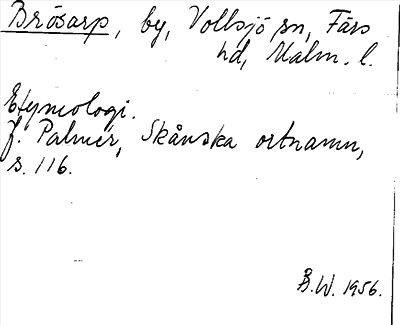 Brösarp, by, Vollsjö sn, Färs
hd, Malm. l.
Etymologi.
J. Palmér, Skånska ortnamn,
s. 116.
B.W. 1956.